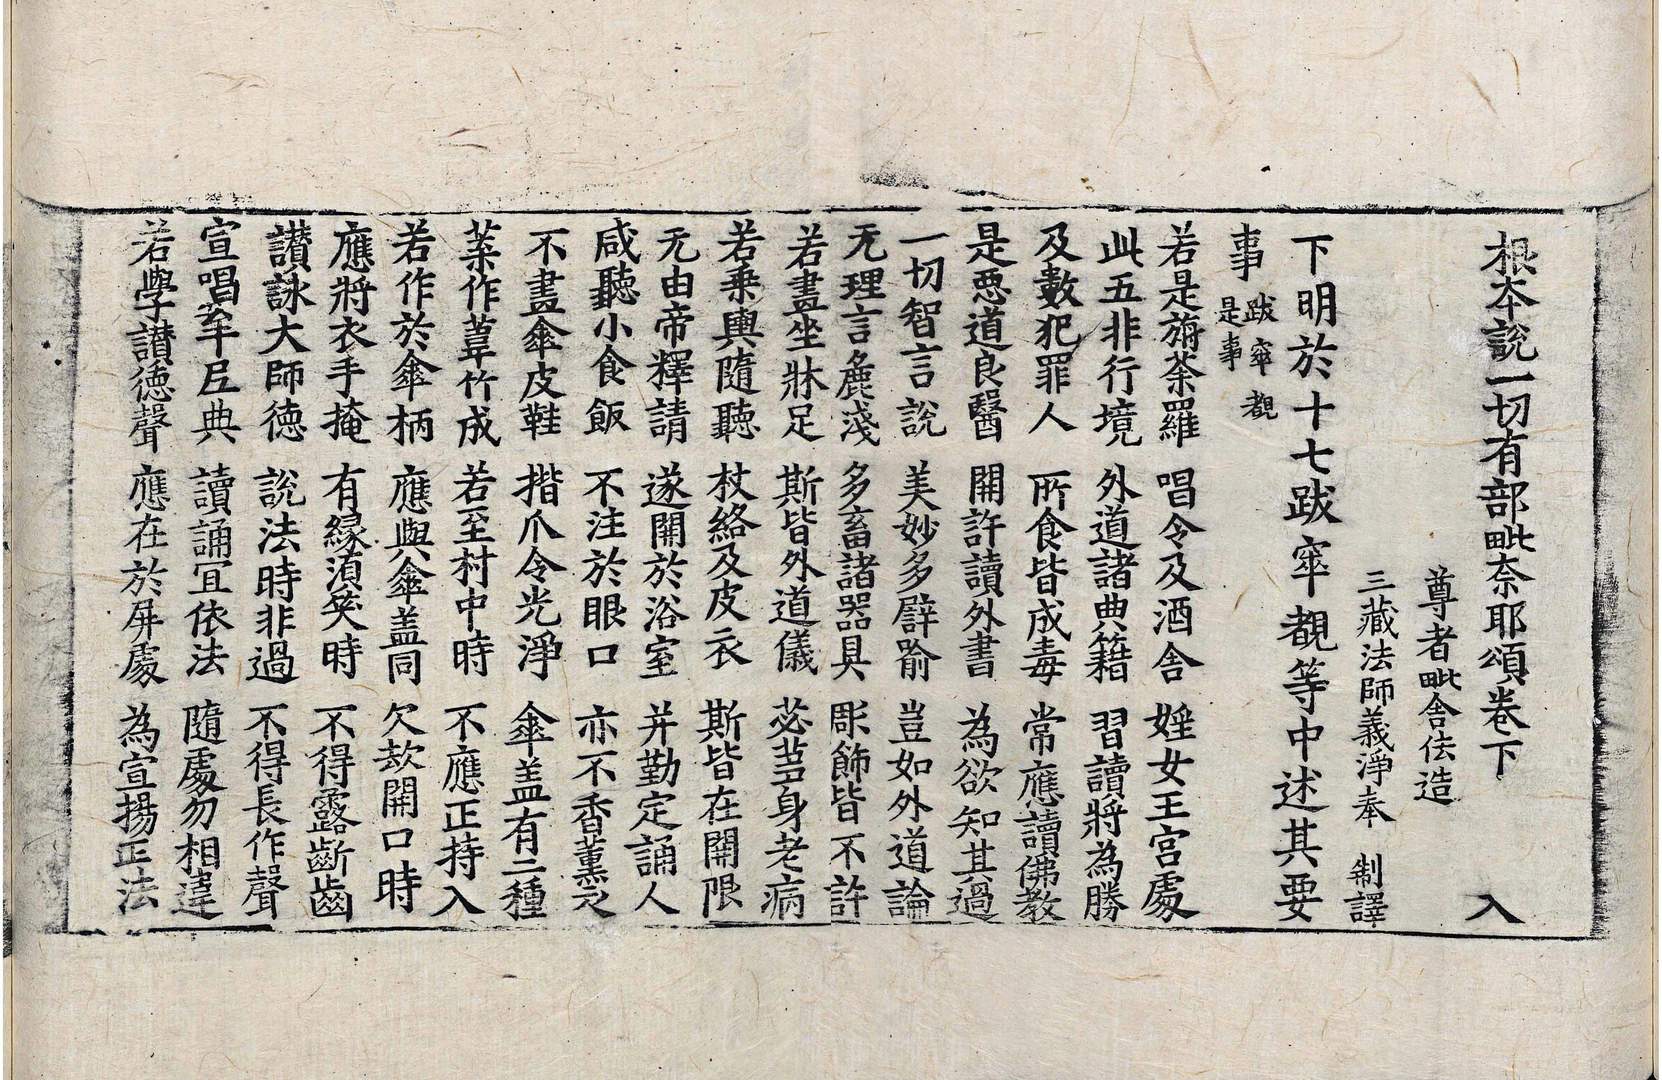 根本說一切有部毗奈耶頌卷下 入
尊者毗舍佉造
三藏法師義淨奉 制譯
下明於十七跋窣覩等中述其要
事 跋窣覩是事
若是旃荼羅 唱令及酒舍 婬女王宮處
此五非行境 外道諸典籍 習讀將為勝
及數犯罪人 所食皆成毒 常應讀佛教
是惡道良醫 開許讀外書 為欲知其過
一切智言說 美妙多譬喻 豈如外道論
无理言麁淺 多畜諸器具 彫飾皆不許
若畫坐牀足 斯皆外道儀 苾芻身老病
若乘輿隨聽 杖絡及皮衣 斯皆在開限
无由帝釋請 遂開於浴室 并勤定誦人
咸聽小食飯 不注於眼口 亦不香薰之
不畫傘皮鞋 揩爪令光淨 傘盖有二種
葉作葦竹成 若至村中時 不應正持入
若作於傘柄 應與傘盖同 欠欬開口時
應將衣手掩 有緣湏笑時 不得露齗齒
讃詠大師德 說法時非過 不得長作聲
宣唱牟尼典 讀誦冝依法 隨處勿相違
若學讃德聲 應在於屏處 為宣揚正法